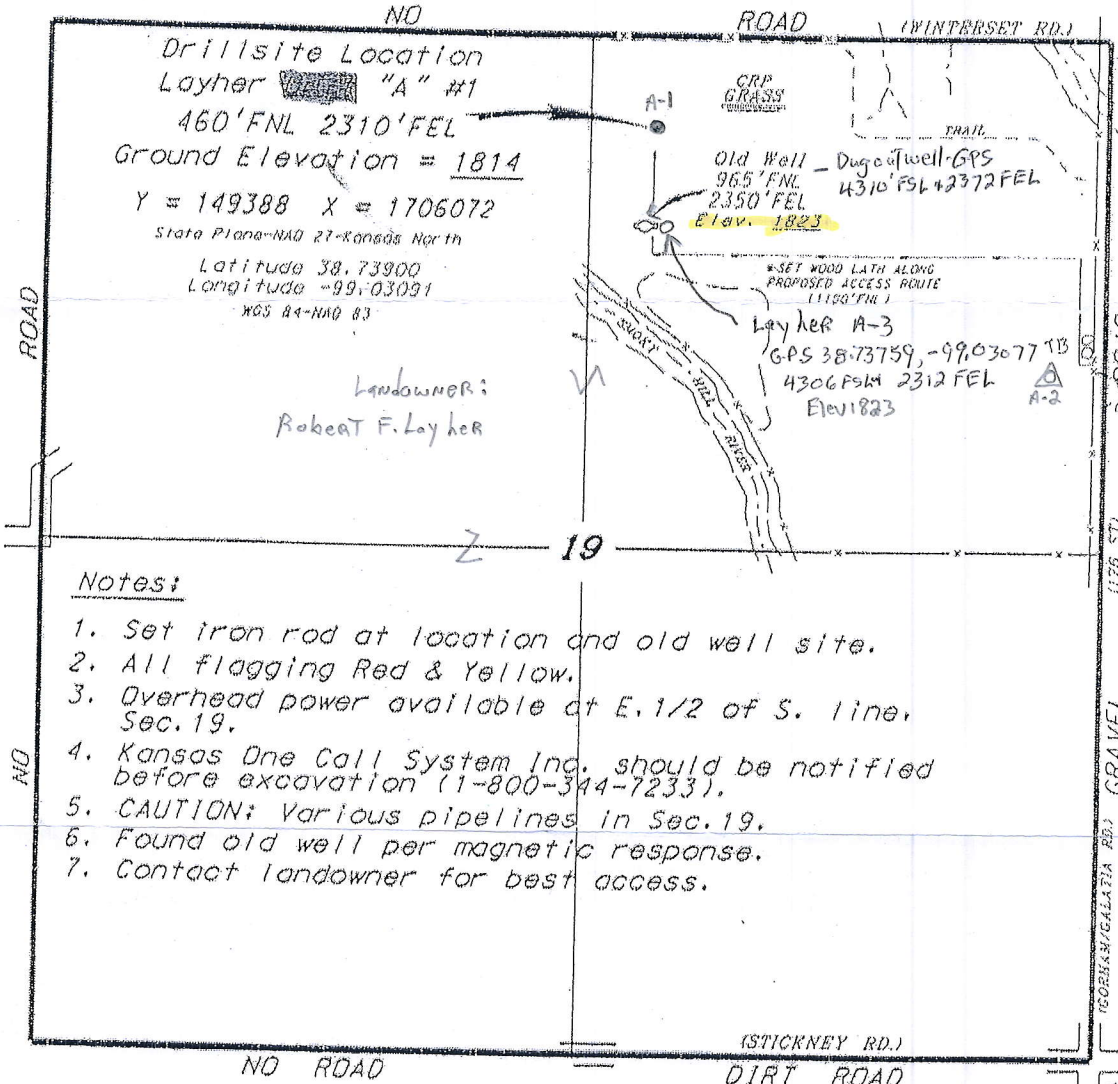 NO
ROAD
(WINTERSET RD.)
Drillsite Location
Layher "A" #1
460'FNL 2310'FEL
Ground Elevation = 1814
Y = 149388 X = 1706072
State Plane-NAD 27-Kansas North
Latitude 38.73900
Longitude -99.03091
WGS 84-NAD 83
Landowner:
Robert F. Layher
A-1
CRP
GRASS
TRAIL
Old Well
965'FNL
2350'FEL
Elev. 1823
- Dugout well-GPS
4310' FSL + 2372 FEL
*SET WOOD LATH ALONG
PROPOSED ACCESS ROUTE
(1180'FNL)
Layher A-3
GPS 38.73759, -99.03077
TB
4306 FSL 2312 FEL
Elev 1823
A-2
SMOKY HILL RIVER
ROAD
NO
19
Notes:
1. Set iron rod at location and old well site.
2. All flagging Red & Yellow.
3. Overhead power available at E.1/2 of S. line,
Sec.19.
4. Kansas One Call System Inc. should be notified
before excavation (1-800-344-7233).
5. CAUTION: Various pipelines in Sec.19.
6. Found old well per magnetic response.
7. Contact landowner for best access.
GRAVEL
(GORHAM/GALATIA RD.)
(STICKNEY RD.)
NO ROAD
DIRT ROAD